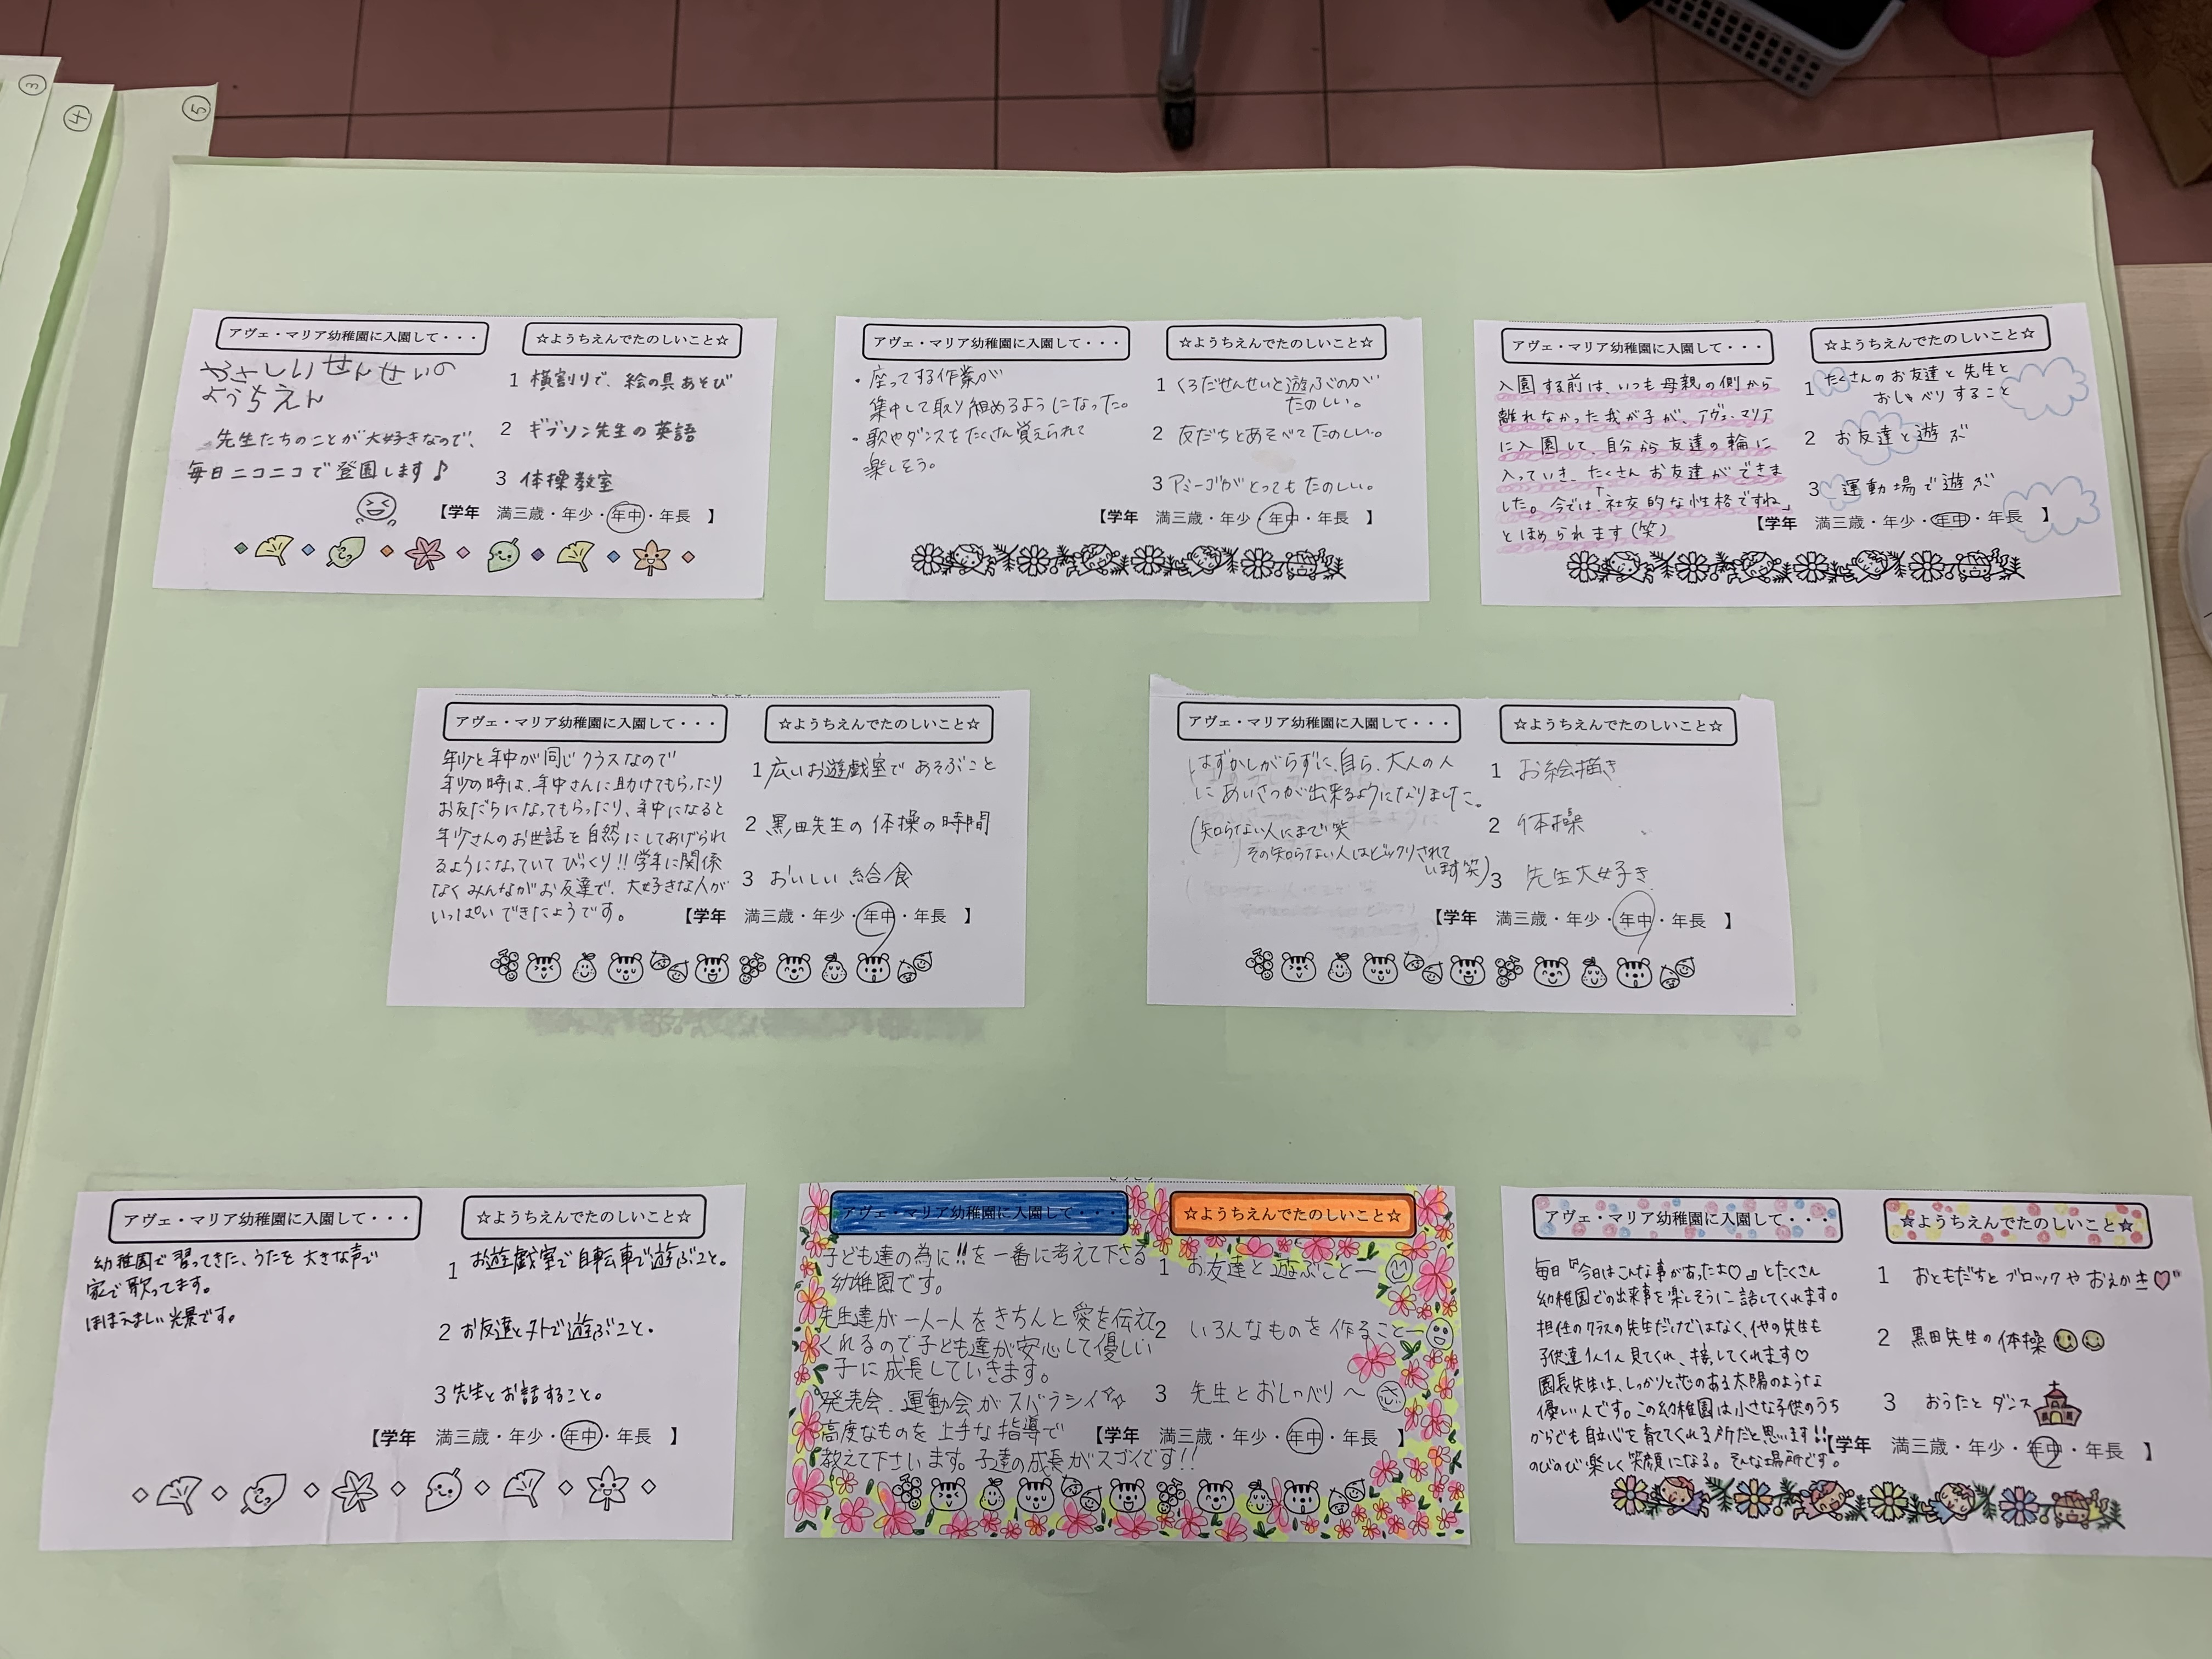 ③
④
⑤
アヴェ・マリア幼稚園に入園して・・・
やさしいせんせいの
ようちえん
先生たちのことが大好きなので、
毎日ニコニコで登園します♪
☆ようちえんでたのしいこと☆
1 横割りで、絵の具あそび
2 ギブソン先生の英語
3 体操教室
【学年 満三歳・年少・年中・年長 】
アヴェ・マリア幼稚園に入園して・・・
・座ってする作業が
集中して取り組めるようになった。
・歌やダンスをたくさん覚えられて
楽しそう。
☆ようちえんでたのしいこと☆
1 くろだせんせいと遊ぶのが
たのしい。
2 友だちとあそべてたのしい。
3 アミーゴがとってもたのしい。
【学年 満三歳・年少・年中・年長 】
アヴェ・マリア幼稚園に入園して・・・
入園する前は、いつも母親の側から
離れなかった我が子が、アヴェ・マリア
に入園して、自分から友達の輪に
入っていき、たくさんお友達ができま
した。今では「社交的な性格ですね」
とほめられます(笑)
☆ようちえんでたのしいこと☆
1 たくさんのお友達と先生と
おしゃべりすること
2 お友達と遊ぶ
3 運動場で遊ぶ
【学年 満三歳・年少・年中・年長 】
アヴェ・マリア幼稚園に入園して・・・
年少と年中が同じクラスなので
年少の時は、年中さんに助けてもらったり
お友だちになってもらったり、年中になると
年少さんのお世話を自然にしてあげられ
るようになっていてびっくり!!学年に関係
なくみんながお友達で、大好きな人が
いっぱいできたようです。
☆ようちえんでたのしいこと☆
1 広いお遊戯室であそぶこと
2 黒田先生の体操の時間
3 おいしい給食
【学年 満三歳・年少・年中・年長 】
アヴェ・マリア幼稚園に入園して・・・
はずかしがらずに、自ら、大人の人
にあいさつが出来るようになりました。
(知らない人にまで笑
その知らない人はビックリされて
います笑)
☆ようちえんでたのしいこと☆
1 お絵描き
2 体操
3 先生大好き
【学年 満三歳・年少・年中・年長 】
アヴェ・マリア幼稚園に入園して・・・
幼稚園で習ってきた、うたを大きな声で
家で歌ってます。
ほほえましい光景です。
☆ようちえんでたのしいこと☆
1 お遊戯室で自転車で遊ぶこと。
2 お友達と外で遊ぶこと。
3 先生とお話すること。
【学年 満三歳・年少・年中・年長 】
アヴェ・マリア幼稚園に入園して・・・
子ども達の為に!!を一番に考えて下さる
幼稚園です。
先生達が一人一人をきちんと愛を伝えて
くれるので子ども達が安心して優しい
子に成長していきます。
発表会、運動会がスバラシイ☆☆
高度なものを上手な指導で
教えて下さいます。子達の成長がスゴイです!!
☆ようちえんでたのしいこと☆
1 お友達と遊ぶことー
2 いろんなものを作ることー
3 先生とおしゃべり〜
【学年 満三歳・年少・年中・年長 】
アヴェ・マリア幼稚園に入園して・・・
毎日『今日はこんな事があったよ♡』とたくさん
幼稚園での出来事を楽しそうに話してくれます。
担任のクラスの先生だけではなく、他の先生も
子供達1人1人見てくれ、接してくれます♡
園長先生は、しっかりと芯のある太陽のような
優しい人です。この幼稚園は小さな子供のうち
からでも自立心を育ててくれる所だと思います!!
のびのび楽しく笑顔になる。そんな場所です。
☆ようちえんでたのしいこと☆
1 おともだちとブロックやおえかき♡
2 黒田先生の体操
3 おうたとダンス
【学年 満三歳・年少・年中・年長 】